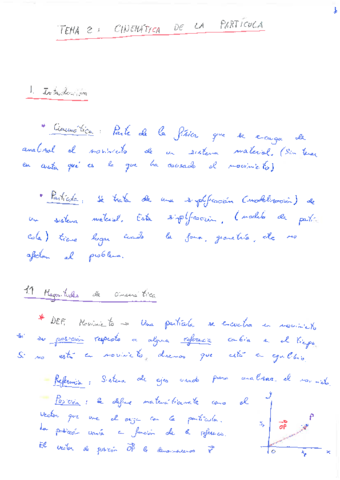 TEMA 2: CINEMÁTICA DE LA PARTÍCULA
1. Introducción
* Cinemática: Parte de la física que se encarga de
analizar el movimiento de un sistema material. (Sin tener
en cuenta qué es lo que ha causado el movimiento)
* Partícula: Se trata de una simplificación (modelización) de
un sistema material. Esta simplificación, (modelo de partí-
cula) tiene lugar cuando la forma, geometría, etc no
afectan al problema.
1.1 Magnitudes de cinemática
* DEF. Movimiento => Una partícula se encuentra en movimiento
si su posición respecto a alguna referencia cambia en el tiempo
Si no está en movimiento, diremos que está en equilibrio
Referencia: Sistema de ejes usado para analizar el movimiento
Posición: Se define matemáticamente como el
vector que une el origen con la partícula.
La posición varía en función de la referencia.
El vector de posición OP lo llamaremos r
y
P
OP
x